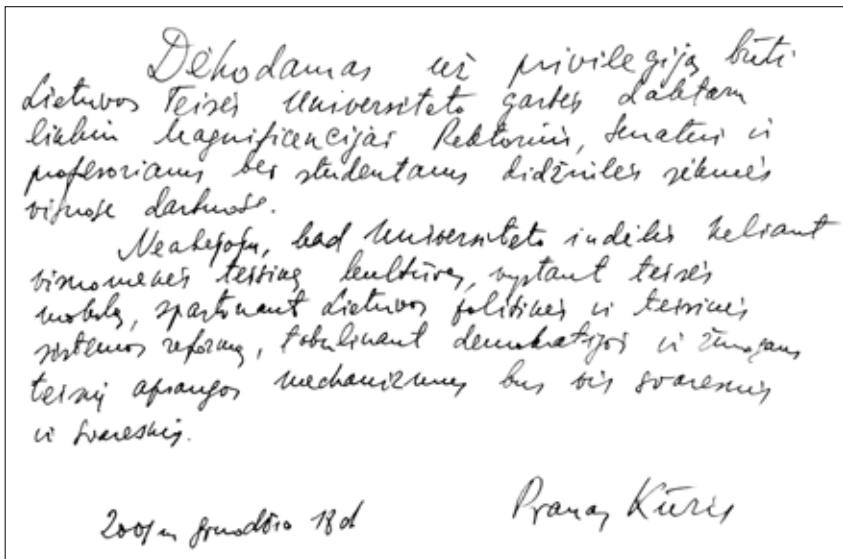 Dėkodamas už privilegiją būti
Lietuvos Teisės Universiteto garbės daktaru
linkiu Magnificencijai Rektoriui, Senatui ir
profesoriams bei studentams didžiulės sėkmės
visuose darbuose.
Neabejoju, kad Universiteto indėlis keliant
visuomenės teisinę kultūrą, vystant teisės
mokslą, spartinant Lietuvos politinės ir teisinės
sistemos reformą, tobulinant demokratijos ir žmogaus
teisių apsaugos mechanizmus bus vis svaresnis
ir svaresnis.
2001 m gruodžio 18 d
Pranas Kūris